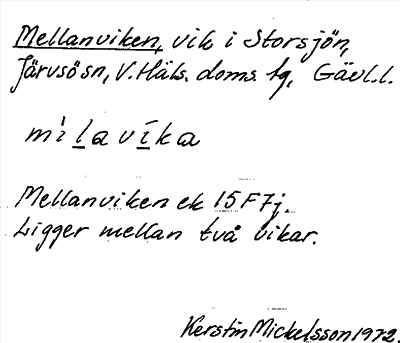 Mellanviken, vik i Storsjön,
Järvsö sn, V. Häls. doms. tg, Gävl.l.
mìlavíka
Mellanviken ek 15F7j.
Ligger mellan två vikar.
Kerstin Mickelsson 1972.